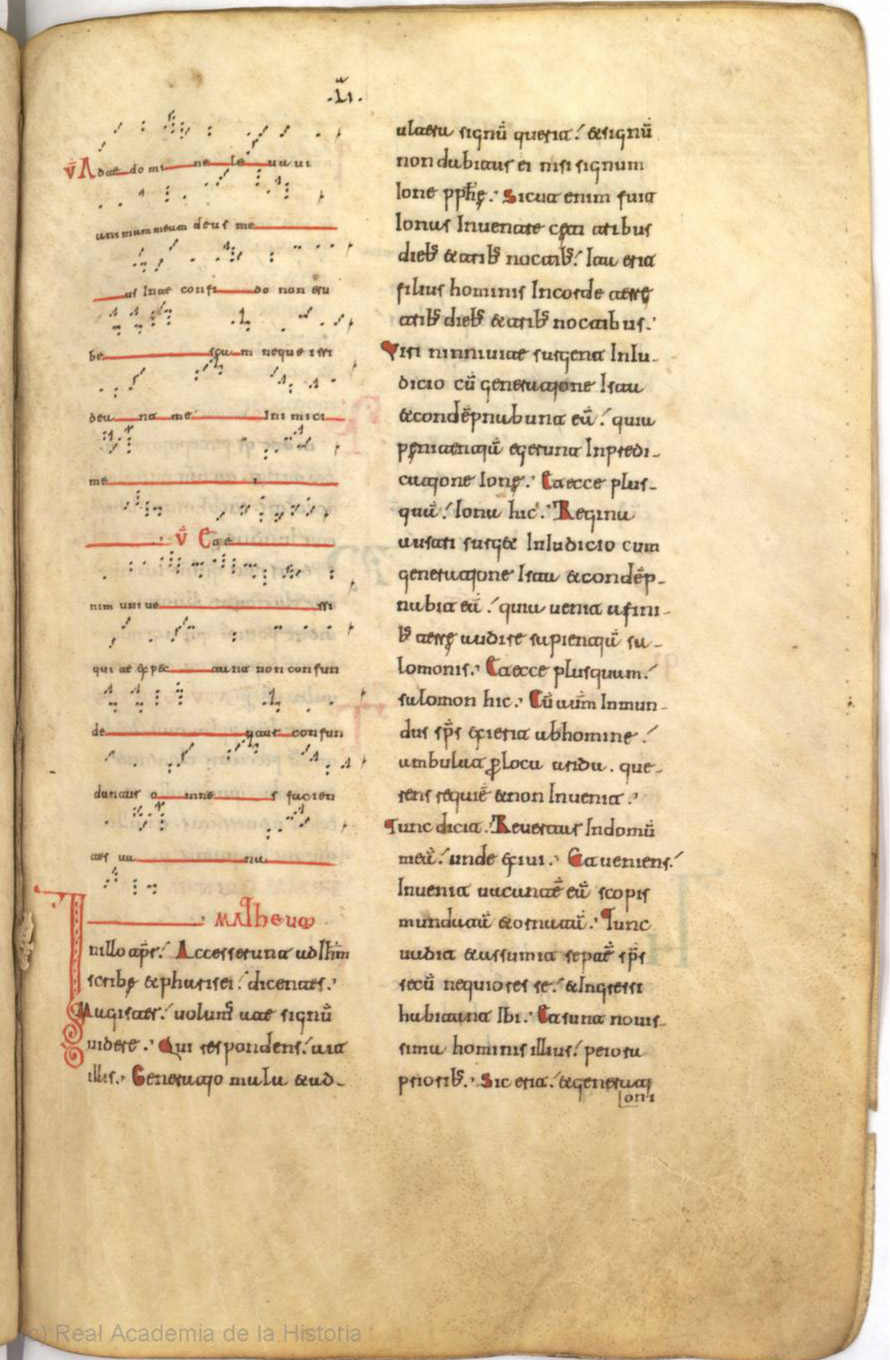 .LI.
V̄ Ad te do mi ne le ua ui
animam meam deus me
us In te confi do non eru
be scam neque irri
dea nt me Ini mici
me i
V̄ Et e
nim uni ue rsi
qui te expec tant non confun
de ntur confun
dantur o mne s facien
tes ua na
Matheum
In illo tp̄r̄. Accesserunt ad Ih̄m
scribę & pharisei. dicentes.
Magister. uolum᷒ a te signū
uidere. Qui respondens. ait
illis. Generatio mala & ad-
ultera signū querit. & signū
non dabitur ei nisi signum
Ione pph̄ę. Sicut enim fuit
Ionas In uentre cęti tribus
dieb; & trib; noctib;. Ita erit
filius hominis In corde terrę
trib; dieb; & trib; noctibus.
Viri niniuite surgent In Iu-
dicio cū generatione Ista
& condēpnabunt eā. quia
pęnitentiā egerunt In predi-
catione Ionę. Et ecce plus-
quā Iona hic. Regina
austri surget In Iudicio cum
generatione Ista & condēp-
nabit eā. quia uenit a fini-
b; terrę audire sapientiā sa-
lomonis. Et ecce plusquam
salomon hic. Cū autm̄ Inmun-
dus sp̄s exierit ab homine.
ambulat ꝑ loca arida. que-
rens requiē & non Inuenit.
Tunc dicit. Reuertar In domū
meā. unde exiui. Et ueniens.
Inuenit uacantē eā scopis
mundatā & ornatā. Tunc
uadit & assumit septē sp̄s
secū nequiores se. & Ingressi
habitant Ibi. Et fiunt nouis-
sima hominis illius. peiora
priorib;. Sic erit. & generati
oni
(c) Real Academia de la Historia